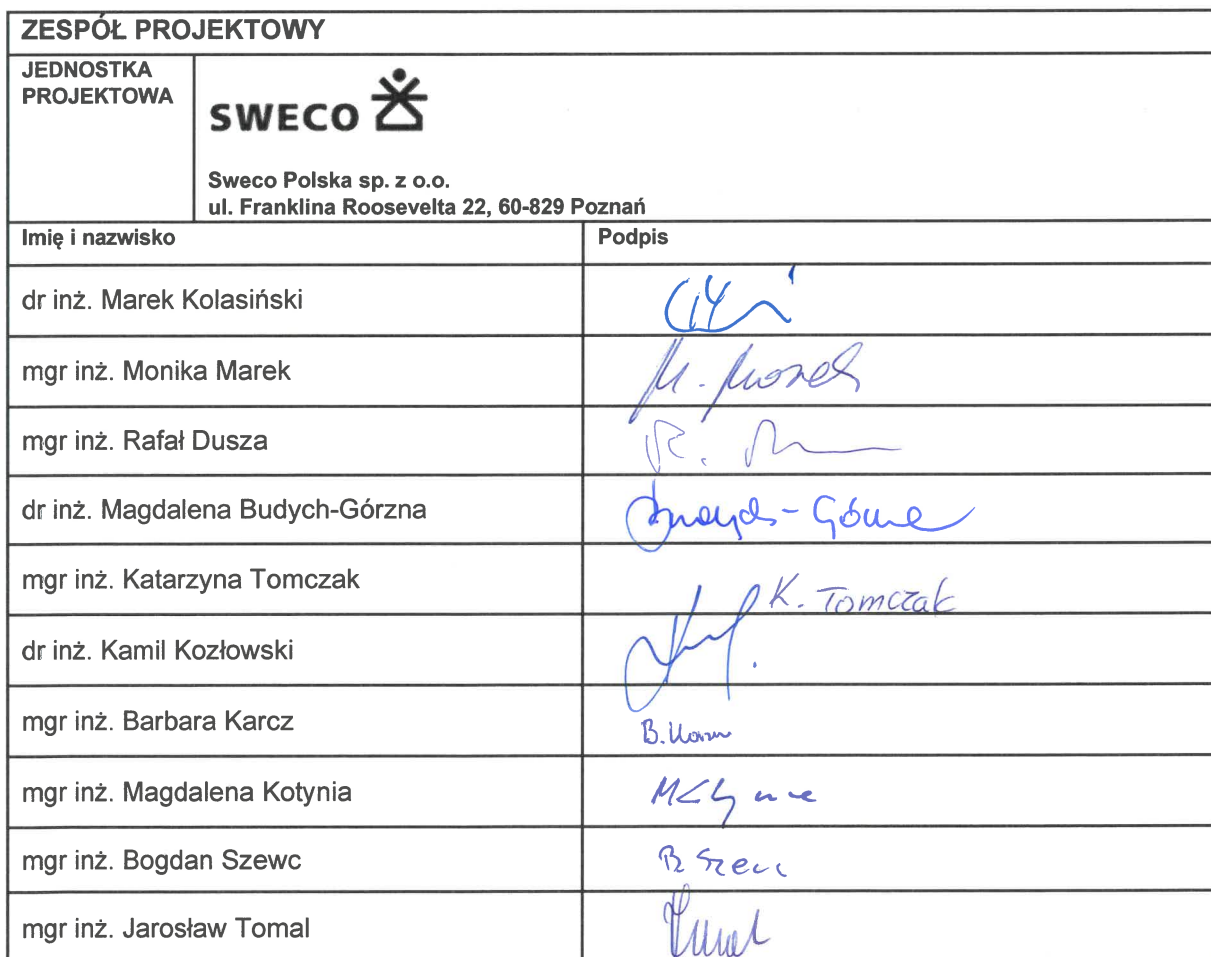 ZESPÓŁ PROJEKTOWY
JEDNOSTKA
PROJEKTOWA
SWECO
Sweco Polska sp. z o.o.
ul. Franklina Roosevelta 22, 60-829 Poznań
Imię i nazwisko Podpis
dr inż. Marek Kolasiński
mgr inż. Monika Marek M. Marek
mgr inż. Rafał Dusza R.
dr inż. Magdalena Budych-Górzna Budych-Górzna
mgr inż. Katarzyna Tomczak K. Tomczak
dr inż. Kamil Kozłowski
mgr inż. Barbara Karcz B. Karcz
mgr inż. Magdalena Kotynia
mgr inż. Bogdan Szewc B Szewc
mgr inż. Jarosław Tomal